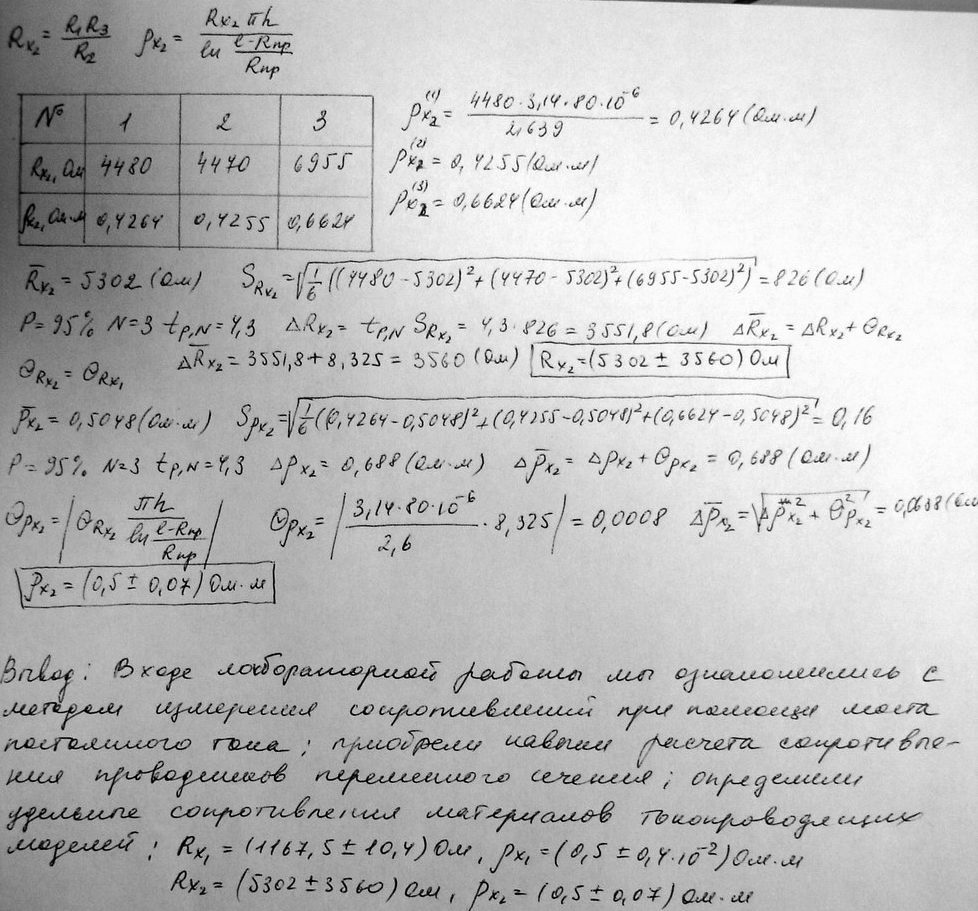 Rx₂ = R₁R₃/R₂   ρx₂ = Rx₂πh / ln((l-Rпр)/Rпр)
№ 1 2 3
Rx₂, Ом 4480 4470 6955
ρx₂, Ом·м 0,4264 0,4255 0,6624
ρx₂⁽¹⁾ = 4480·3,14·80·10⁻⁶ / 2,639 = 0,4264 (Ом·м)
ρx₂⁽²⁾ = 0,4255 (Ом·м)
ρx₂⁽³⁾ = 0,6624 (Ом·м)
R̄x₂ = 5302 (Ом)   S_Rx₂ = √(1/6 ((4480-5302)²+(4470-5302)²+(6955-5302)²)) = 826 (Ом)
P = 95% N=3 t_P,N = 4,3   ΔRx₂ = t_P,N S_Rx₂ = 4,3·826 = 3551,8 (Ом)   ΔR̄x₂ = ΔRx₂ + ΘRx₂
ΘRx₂ = ΘRx₁   ΔR̄x₂ = 3551,8 + 8,325 = 3560 (Ом)   Rx₂ = (5302 ± 3560) Ом
ρ̄x₂ = 0,5048 (Ом·м)   Sρx₂ = √(1/6 ((0,4264-0,5048)²+(0,4255-0,5048)²+(0,6624-0,5048)²)) = 0,16
P = 95% N=3 t_P,N = 4,3   Δρx₂ = 0,688 (Ом·м)   Δρ̄x₂ = Δρx₂ + Θρx₂ = 0,688 (Ом·м)
Θρx₂ = |ΘRx₂ πh / ln((l-Rпр)/Rпр)|   Θρx₂ = |3,14·80·10⁻⁶ / 2,6 · 8,325| = 0,0008   Δρ̄x₂ = √(Δρ̄²x₂ + Θ²ρx₂)
ρx₂ = (0,5 ± 0,07) Ом·м
Вывод: В ходе лабораторной работы мы ознакомились с
методом измерения сопротивлений при помощи моста
постоянного тока; приобрели навыки расчета сопротивле-
ния проводников переменного сечения; определили
удельные сопротивления материалов токопроводящих
моделей; Rx₁ = (1167,5 ± 10,4) Ом, ρx₁ = (0,5 ± 0,4·10⁻²) Ом·м
Rx₂ = (5302 ± 3560) Ом, ρx₂ = (0,5 ± 0,07) Ом·м